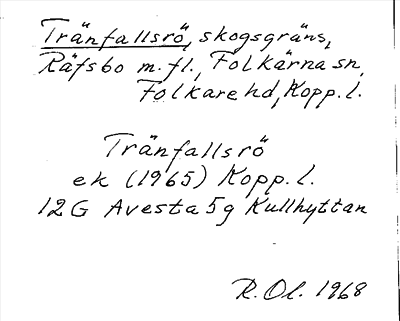 Tränfallsrö, skogsgräns,
Räfsbo m.fl., Folkärna sn,
Folkare hd, Kopp. l.
Tränfallsrö
ek (1965) Kopp. l.
12G Avesta 5g Kullhyttan
R. Ol. 1968